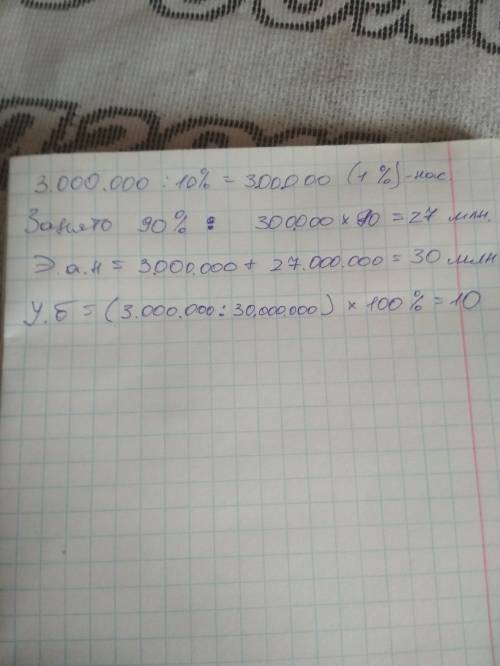 3.000.000 : 10% = 300.000 (1%) - нас.
Занято 90% : 300.000 × 90 = 27 млн.
Э.а.н = 3.000.000 + 27.000.000 = 30 млн
У.б = (3.000.000 : 30.000.000) × 100% = 10